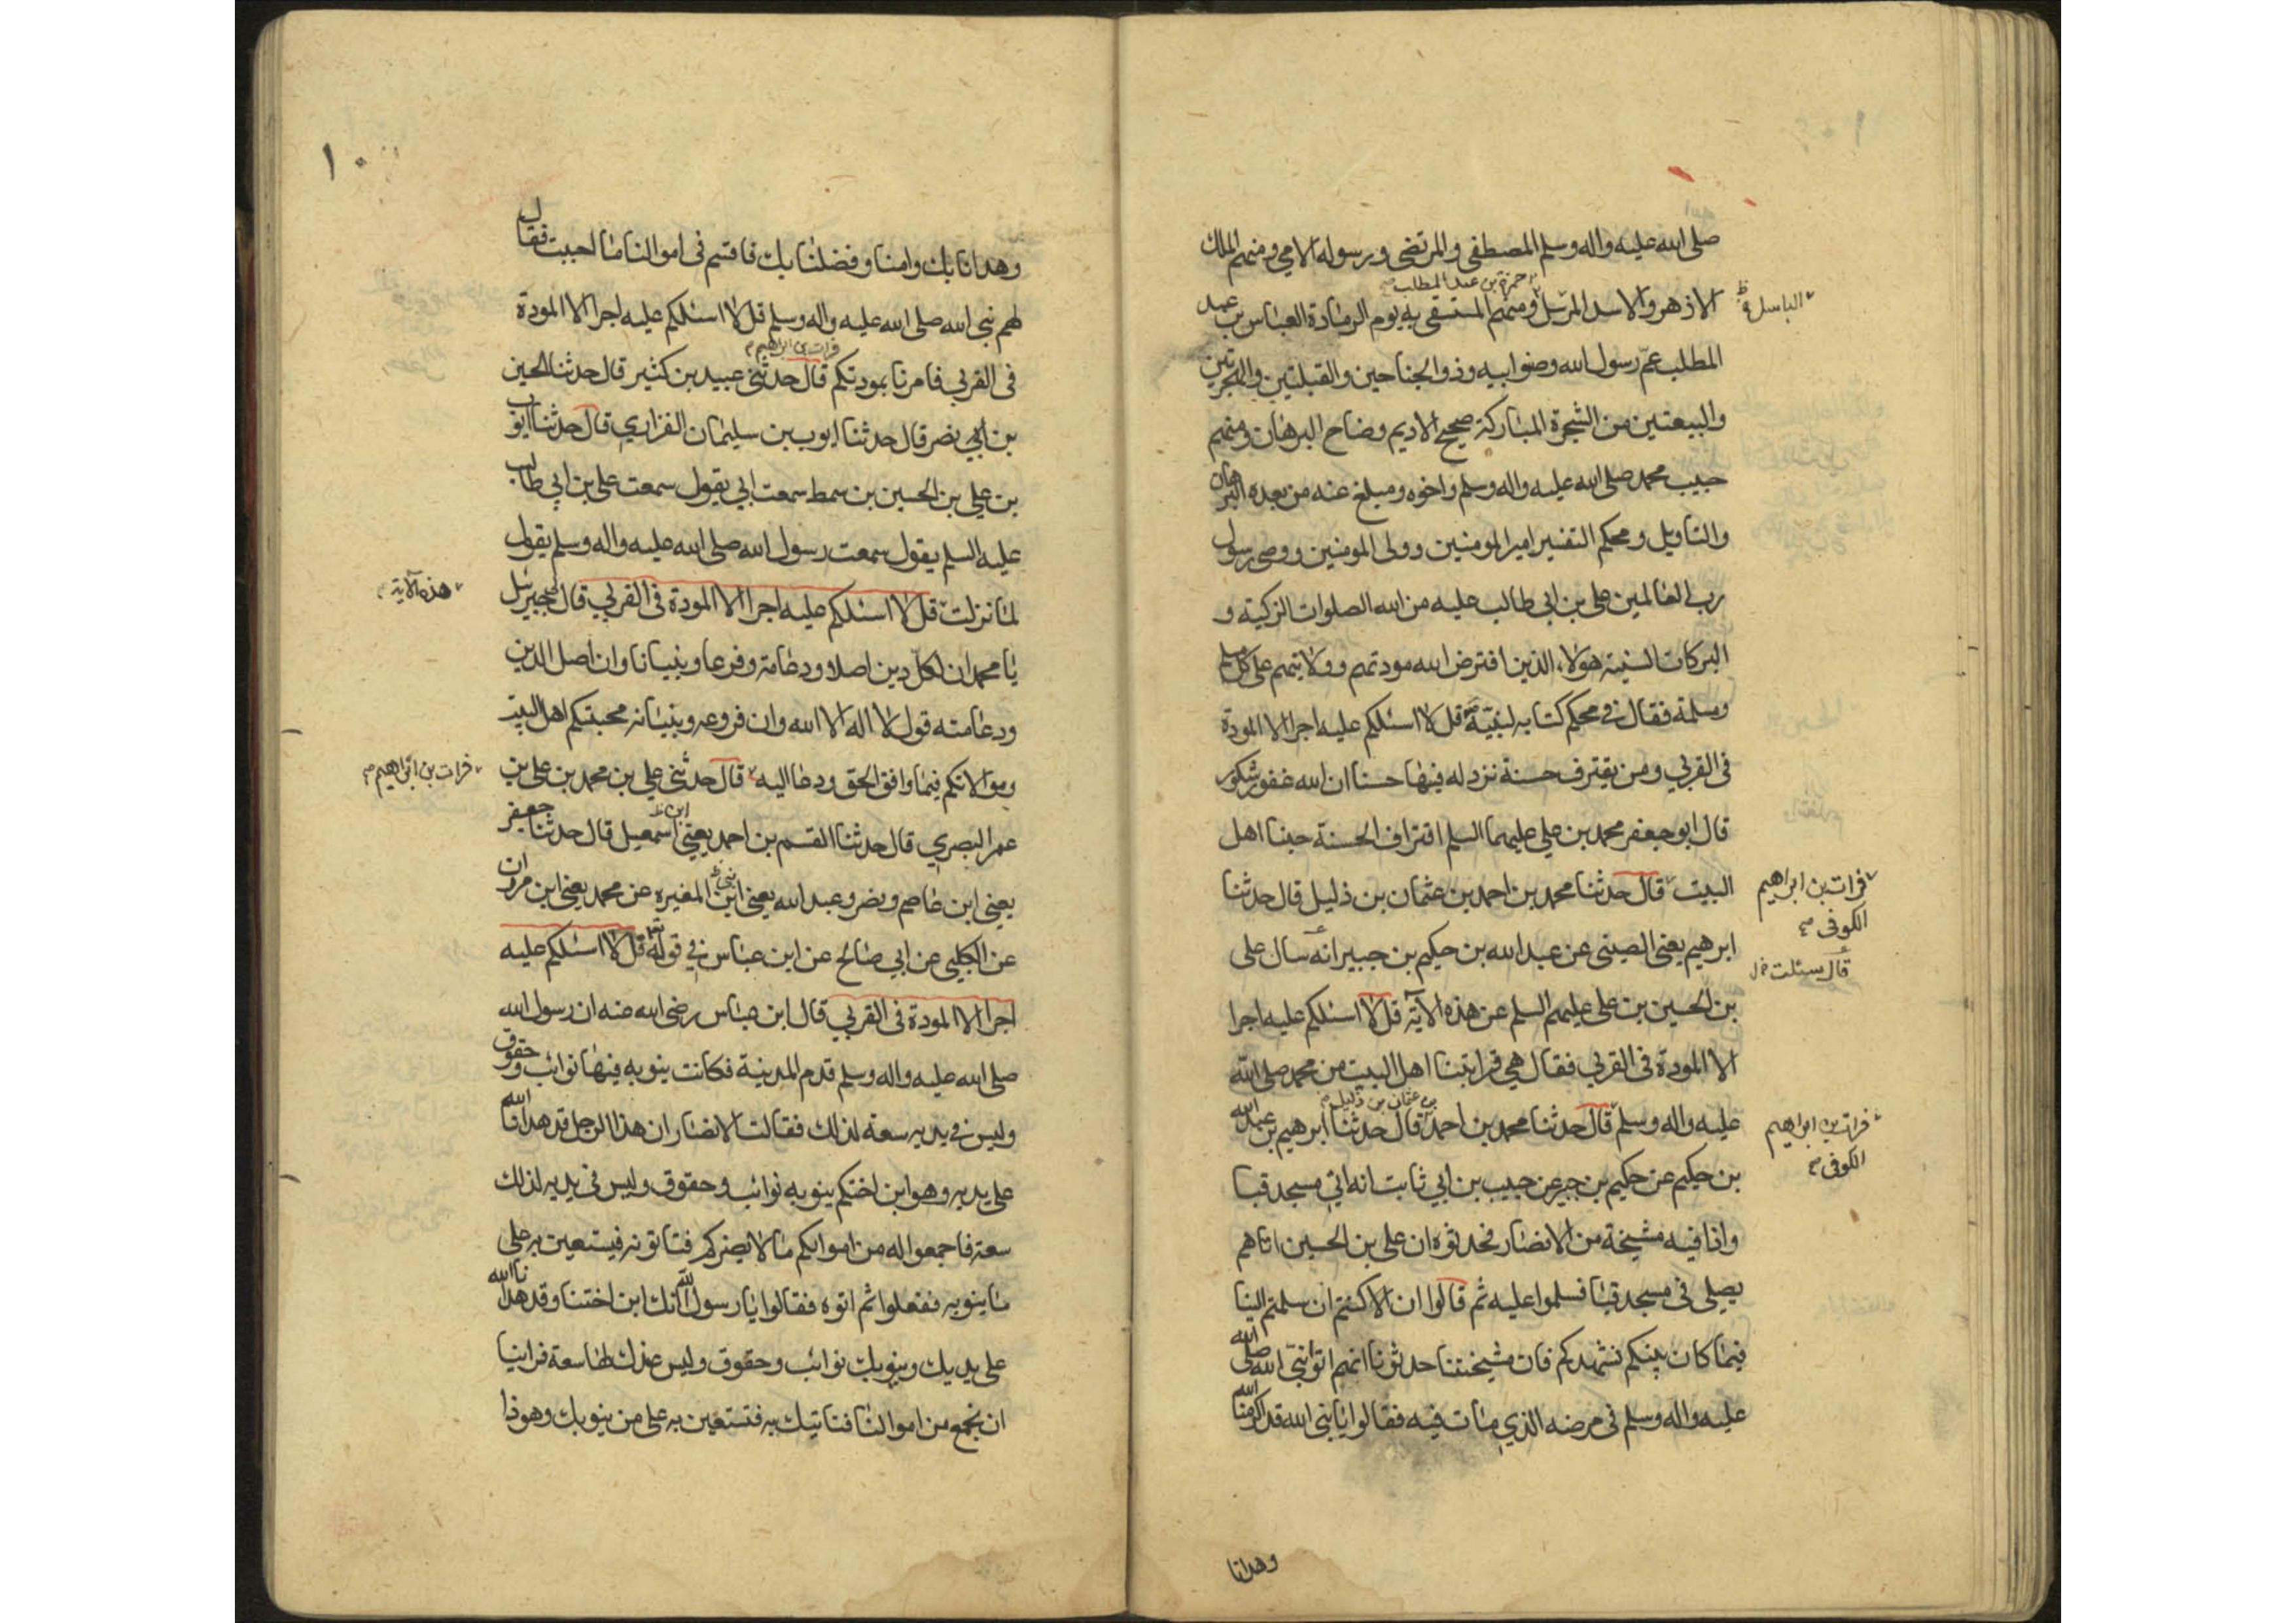 صلى الله عليه واله وسلم المصطفى والمرتضى ورسوله الامي ومنهم الملك
حمزة بن عبد المطلب صح
الازهر والاسد المرسل ومنهم المستسقى به يوم الرمادة العباس بن عبد
الباسل ظ
المطلب عمّ رسول الله وصنو ابيه وذو الجناحين والقبلتين والهجرتين
والبيعتين من الشجرة المباركة صحيح الاديم وضاح البرهان ومنهم
حبيب محمد صلى الله عليه واله وسلم واخوه ومبلغ عنه من بعده البرهان
والتاويل ومحكم التفسير امير المومنين وولى المومنين ووصى رسول
رب العالمين على بن ابى طالب عليه من الله الصلوات الزكية و
البركات السنية هولاء الذين افترض الله مودتهم وولايتهم على كل مسلم
ومسلمة فقال في محكم كتابه لنبيّه قل لا اسئلكم عليه اجرا الا المودة
فى القربى ومن يقترف حسنة نزد له فيها حسنا ان الله غفور شكور
قال ابو جعفر محمد بن علي عليهما السلم اقتراف الحسنة حبنا اهل
البيت قال حدثنا محمد بن احمد بن عثمان بن ذليل قال حدثنا
فرات بن ابراهيم
الكوفى صح
ابرهيم يعنى الصينى عن عبد الله بن حكيم بن جبير انه سال على
قال سئلت خ ل
بن الحسين بن على عليهم السلم عن هذه الآية قل لا اسئلكم عليه اجرا
الا المودة فى القربى فقال هي قرابتنا اهل البيت من محمد صلى الله
بن عثمان بن ذليل صح
عليه واله وسلم قال حدثنا محمد بن احمد قال حدثنا ابرهيم بن عبد الله
فرات بن ابراهيم
الكوفى صح
بن حكيم عن حكيم بن جبير عن حبيب بن ابي ثابت انه اتي مسجد قبا
واذا فيه مشيخة من الانصار فحدثوه ان على بن الحسين اتاهم
يصلى فى مسجد قبا فسلموا عليه ثم قالوا ان الا كنتم ان سلمتم الينا
فيما كان بينكم نشهدكم فان مشيختنا حدثونا انهم اتوا نبى الله صلى الله
عليه واله وسلم فى مرضه الذي مات فيه فقالوا يا نبى الله قد اكرمنا الله
وهدانا
١٠
وهدانا بك وامنا وفضلنا بك فاقسم فى اموالنا ما احببت فقال
لهم نبى الله صلى الله عليه واله وسلم قل لا اسئلكم عليه اجرا الا المودة
فرات بن ابراهيم صح
فى القربى فامرنا بمودتكم قال حدثنى عبيد بن كثير قال حدثنا الحسين
بن ابي نصر قال حدثنا ايوب بن سليمان الفزاري قال حدثنا ايوب
بن علي بن الحسين بن سمط سمعت ابي يقول سمعت على بن ابي طالب
عليه السلم يقول سمعت رسول الله صلى الله عليه واله وسلم يقول
لما نزلت قل لا اسئلكم عليه اجرا الا المودة فى القربى قال جبرئيل
هذه الاية
يا محمد ان لكل دين اصلا ودعامة وفرعا وبنيانا وان اصل الدين
ودعامته قول لا اله الا الله وان فروعه وبنيانه محبتكم اهل البيت
وموالاتكم فيما وافق الحق ودعا اليه قال حدثنى علي بن محمد بن على بن
فرات بن ابراهيم صح
عمر البصري قال حدثنا القسم بن احمد يعنى ابن اسمعيل قال حدثنا جعفر
يعنى ابن عاصم ونصر وعبد الله يعنى ابن المغيره عن محمد يعنى ابن مروان
عن الكلبي عن ابي صالح عن ابن عباس في قوله قل لا اسئلكم عليه
اجرا الا المودة فى القربي قال ابن عباس رضى الله عنه ان رسول الله
صلى الله عليه واله وسلم قدم المدينة فكانت ينوبه فيها نوائب وحقوق
وليس في يديه سعة لذلك فقالت الانصار ان هذا الرجل قد هدانا الله
على يديه وهو ابن اختكم ينوبه نوائب وحقوق وليس فى يديه لذلك
سعة فاجمعوا له من اموالكم ما لا يضركم فتاتونه فيستعين به على
ما ينوبه ففعلوا ثم اتوه فقالوا يا رسول الله انك ابن اختنا وقد هدانا الله
على يديك وينوبك نوائب وحقوق وليس عندك لها سعة فراينا
ان نجمع من اموالنا فناتيك به فتستعين به على من ينوبك وهو ذا